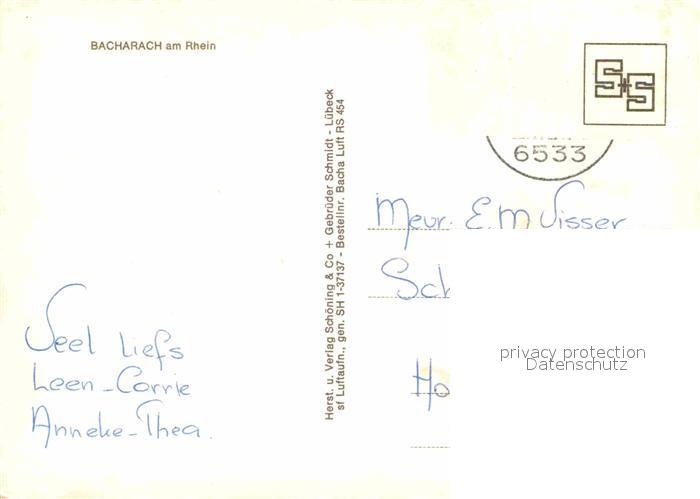 BACHARACH am Rhein
S+S
6533
Herst. u. Verlag Schöning & Co + Gebrüder Schmidt - Lübeck
sf Luftaufn., gen. SH 1-37137 - Bestellnr. Bacha Luft RS 454
Mevr. E.M Visser
Sch
Ho
privacy protection
Datenschutz
Veel liefs
Leen-Corrie
Anneke-Thea.